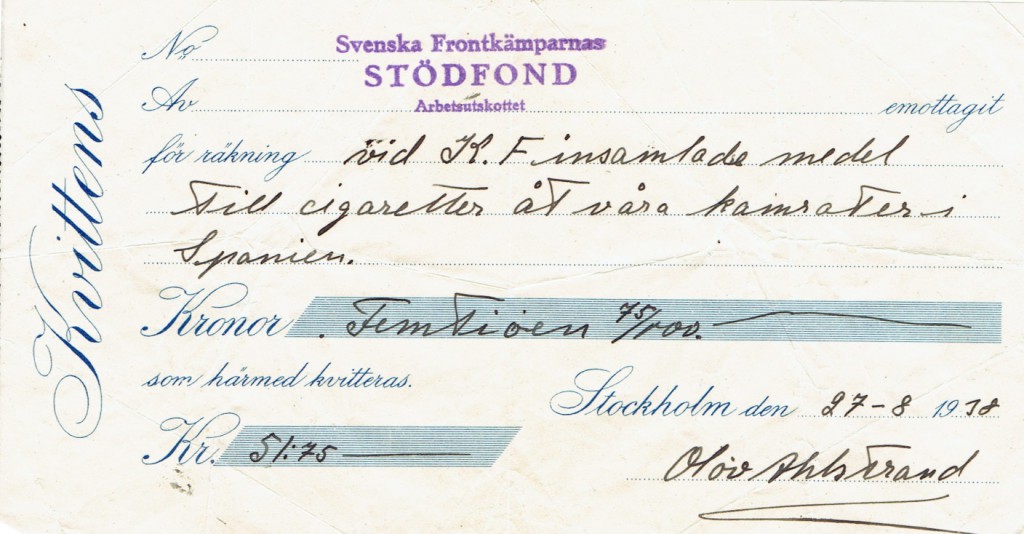 Kvittens
No
Svenska Frontkämparnas
STÖDFOND
Arbetsutskottet
Av emottagit
för räkning vid K.F insamlade medel
till cigaretter åt våra kamrater i
Spanien.
Kronor Femtioen 75/100.
som härmed kvitteras.
Stockholm den 27-8 1938
Kr. 51:75
Olov Ahlstrand